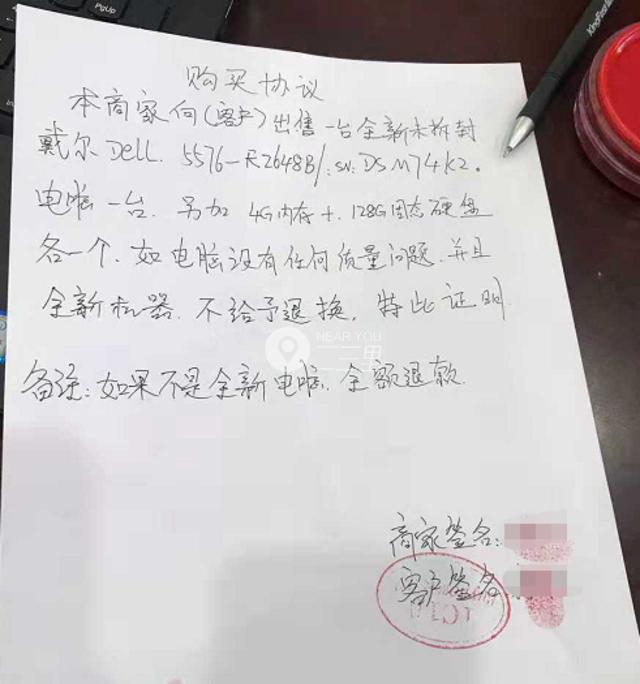 PgUp
KingFirst
购买协议
本商家向(客户)出售一台全新未拆封
戴尔Dell. 5576-R2648B/:SN:DSM74K2。
电脑一台. 另加 4G内存+.128G固态硬盘
各一个. 如电脑没有任何质量问题. 并且
全新机器. 不给予退换, 特此证明.
NEAR YOU
二三里
备注:如果不是全新电脑. 全额退款.
商家签名:
客户签名